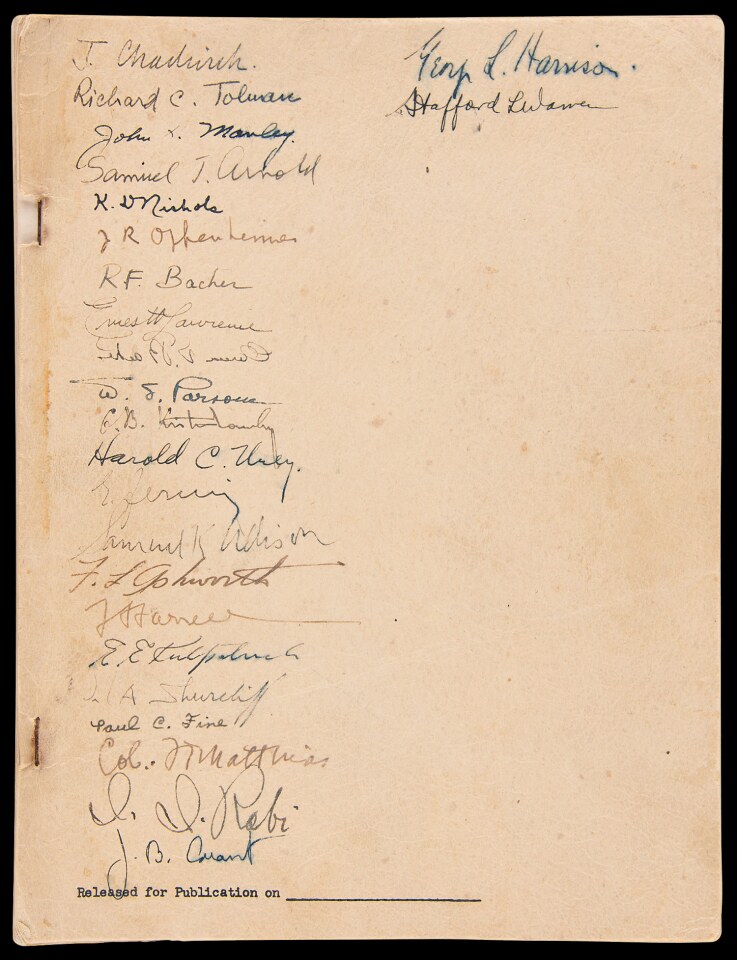 J. Chadwick.
Richard C. Tolman
John H. Manley.
Samuel T. Arnold
K. D Nichols
J R Oppenheimer
R.F. Bacher
Ernest O Lawrence
W. S. Parsons
G.B. Kistiakowsky
Harold C. Urey.
E. Fermi
Samuel K Allison
F. L Ashworth
E. E Kirkpatrick
W A Shurcliff
Paul C. Fine
Col. F T Matthias
I. I. Rabi
J. B. Conant
Released for Publication on
George L. Harrison.
Stafford L Warren